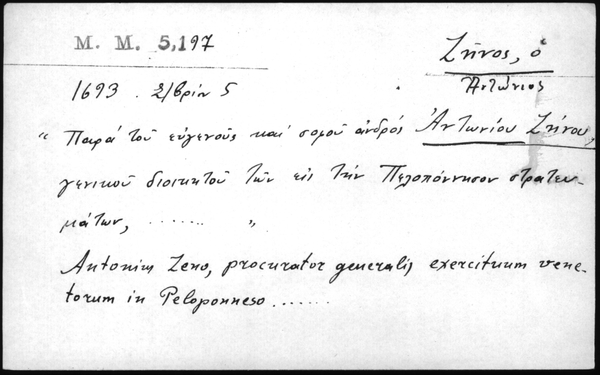 M. M. 5,197
Ζῆνος, ὁ
Ἀντώνιος
1693 . Σ/βρίῳ 5
" Παρά τοῦ εὐγενοῦς καί σοφοῦ ἀνδρός Ἀντωνίου Ζήνου,
γενικοῦ διοικητοῦ τῶν εἰς τήν Πελοπόννησον στρατευ-
μάτων, ....... "
Antonius Zeno, procurator generalis exercituum vene-
torum in Peloponneso ......